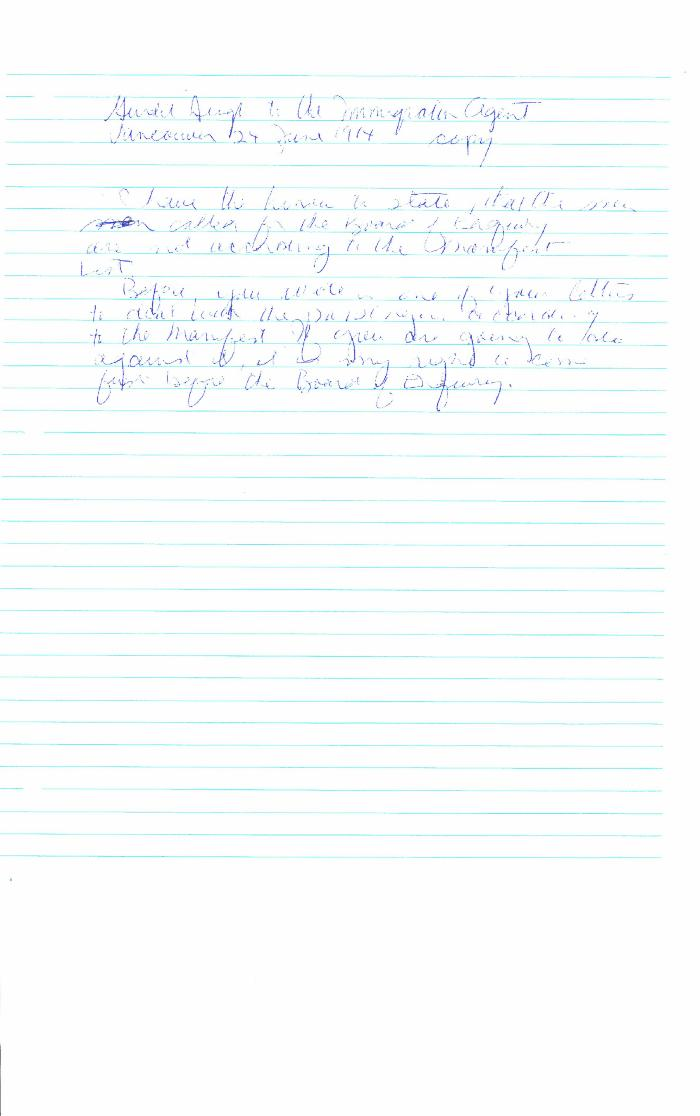 Gurdit Singh to the Immigration Agent
Vancouver 24 June 1914 copy
I have the honor to state, that the men
called for the Board of Enquiry
are not according to the Manifest
List.
Before, you wrote in one of your letters
to deal with the passengers according
to the Manifest If you are going to
against it, it is my right to come
first before the Board of Enquiry.